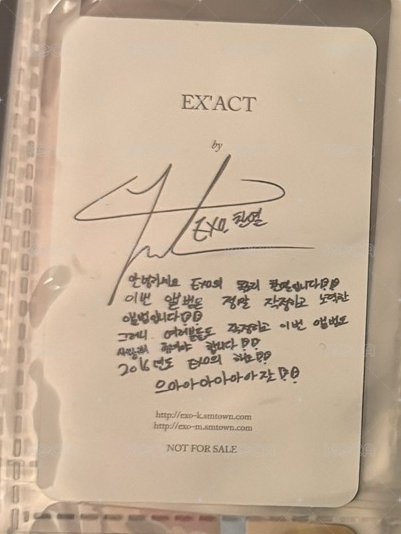 EX'ACT
by
EXO 찬열
안녕하세요 EXO의 찬열입니다!!
이번 앨범은 정말 작정하고 노력한
앨범입니다!!
그러니 여러분들도 작정하고 이번 앨범도
사랑해 주셔야 합니다!!
2016년도 EXO의 해!!
으아아아아아아잣!!
http://exo-k.smtown.com
http://exo-m.smtown.com
NOT FOR SALE